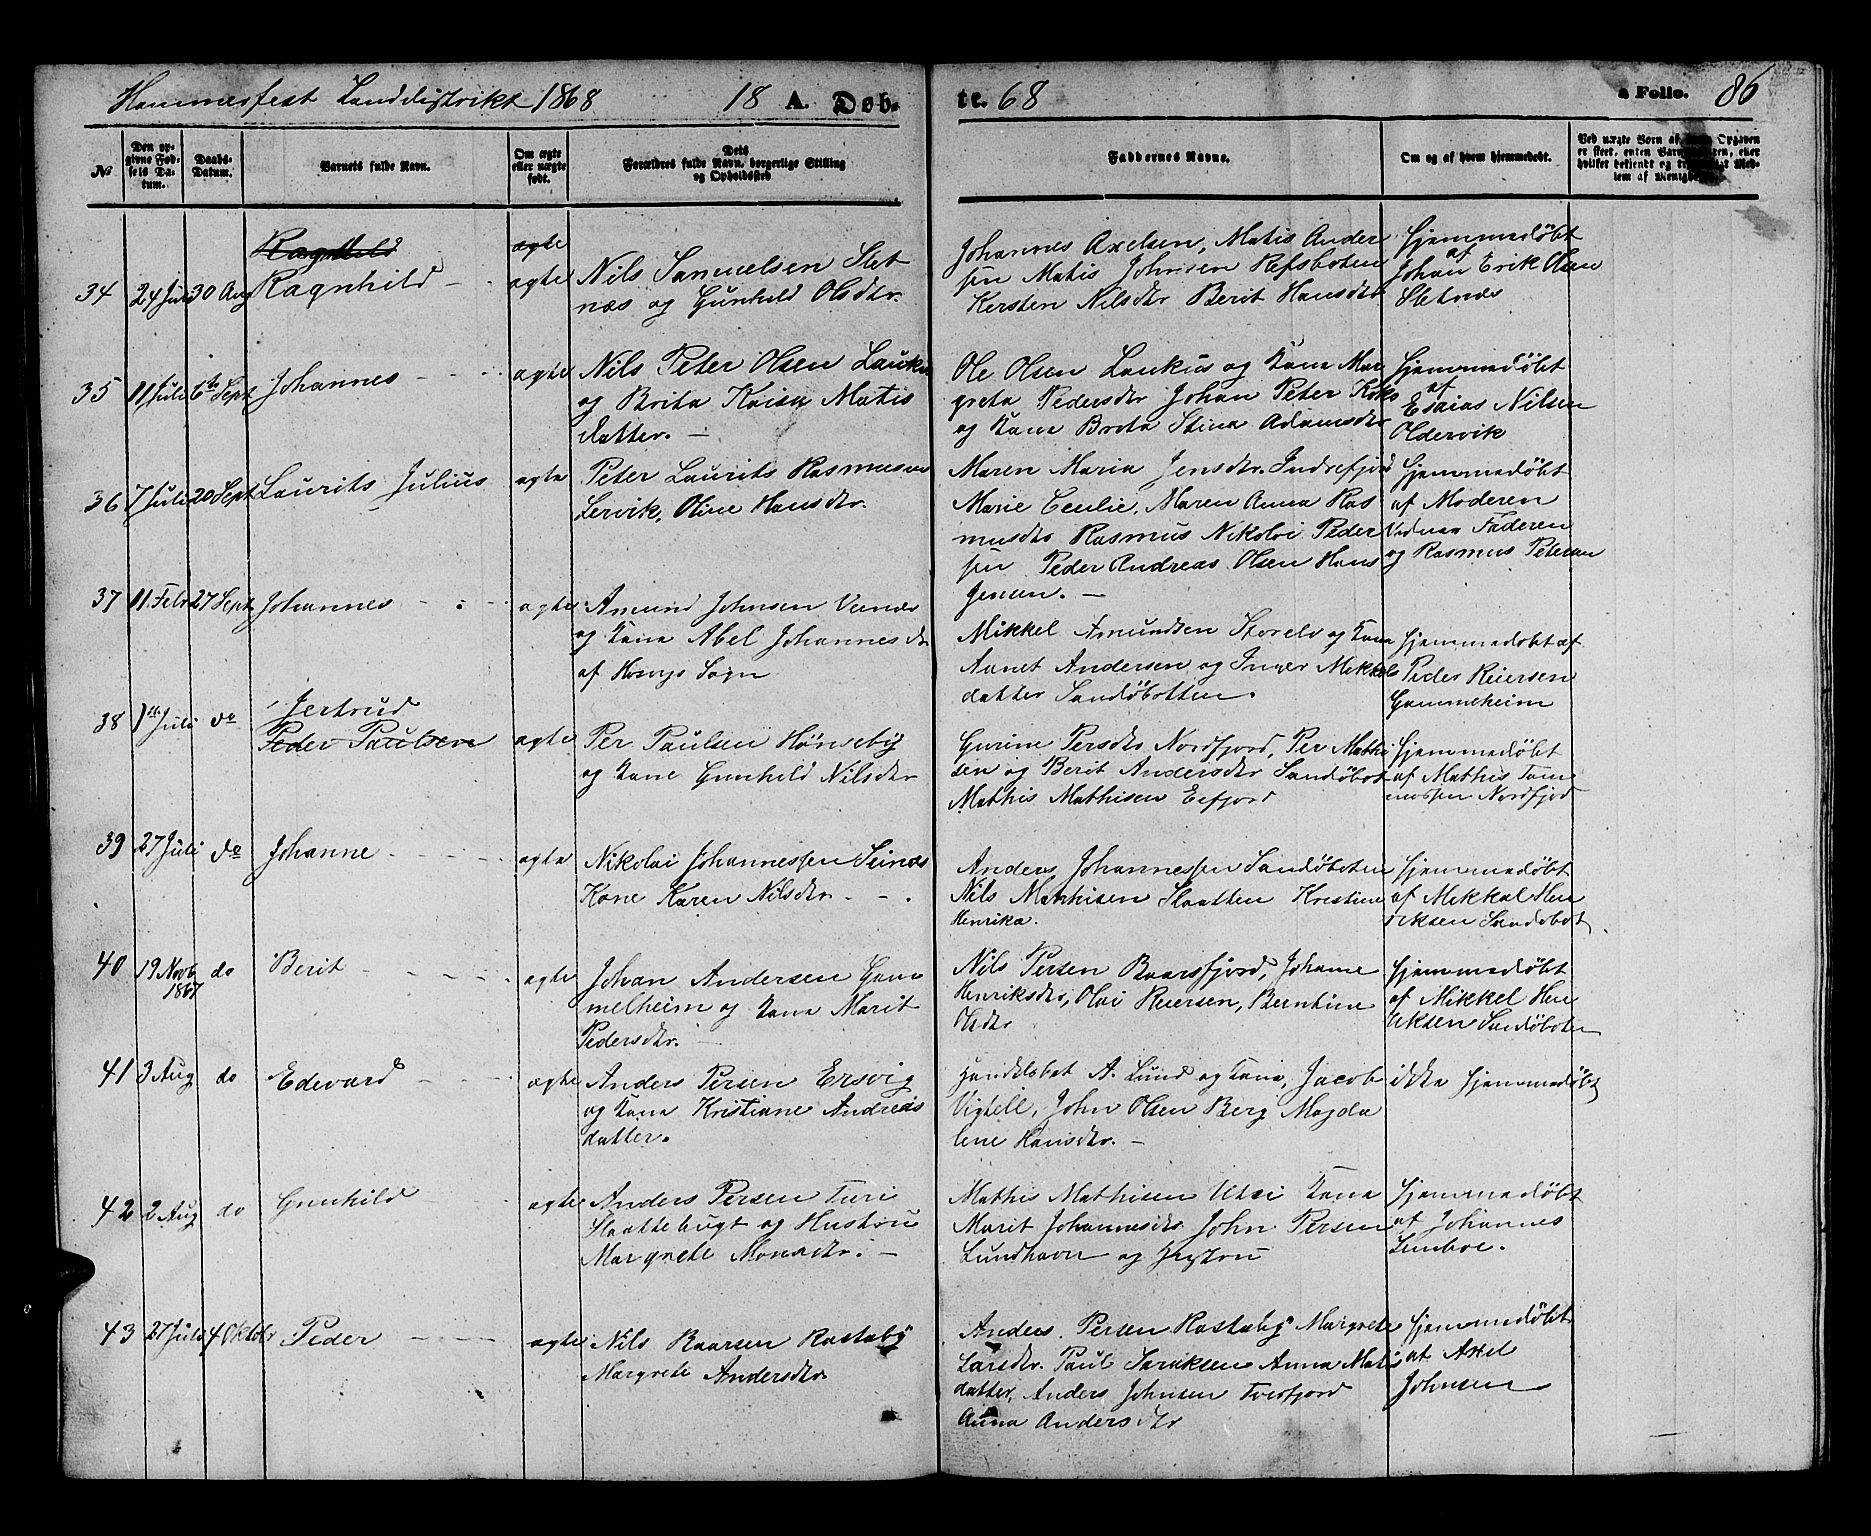 Hammerfest Landdistrikt 1868 18 A. Døb-
te. 68 a Folio. 86
No
Den op-
givne Fød-
sels Da-
tum.
Daabs-
Datum.
Barnets fulde Navn.
Om ægte
eller uægte
født.
Dets
Forældres fulde Navn, borgerlige Stilling
og Opholdssted
Faddernes Navne.
Om og af hvem hjemmedøbt.
Ved uægte Børn af Opgaven
er skeet, enten Barn eller
hvilket bekjendt og Med-
lem af Menigh
34 24 Juli 30 Aug
Ragnhild
Ragnhild
ægte
ægte
Nils Samuelsen Slet
næs og Gunhild Olsdtr.
Johannes Axelsen, Matis Ander
sen Matis Johnsen Refsboten
Kersten Nilsdtr Berit Hansdtr
Hjemmedøbt
af
Johan Erik Olsen
Sletnæs
35 11 Juli 6te Sept Johannes ægte
Nils Peter Olsen
og Brita Kaisa Matis
datter.
Ole Olsen Laukus og Kona Mar
greta Pedersdtr Johan Peter
og Kona Brita Stina Adamsdtr
Hjemmedøbt
af
Esaias Nilsen
Oldervik
36 7 Juli 20 Sept Laurits Julius ægte
Peter Laurits Rasmussen
Lervik, Oline Hansdtr.
Maren Maria Jensdtr. Indrefjord
Marie Cecilie, Maren Anna Ras
musdtr Rasmus Nikolai Peder
sen Peder Andreas Olsen Hans
Jensen.
Hjemmedøbt
af Moderen
Vidner Faderen
og Rasmus Petersen
37 11 Febr 27 Sept Johannes ægte
Amund Johnsen
og Kona Abel Johannesdtr
af Sogn
Mikkel Amundsen Storelv og Kona
Andersen og Inger Mikkels
datter Sandøbotten.
Hjemmedøbt af
Peder Reiersen
Gammelheim
38 1ste Juli do
Jertrud
Peder Paulsen
ægte
Per Paulsen Hønseby
og Kone Gunhild Nilsdtr
Gurine Persdtr Nordfjord, Per Mathi
sen og Berit Andersdtr Sandøbot
Mathis Mathisen Eefjord
Hjemmedøbt
af Mathis Tom
messen Nordfjord
39 27 Juli do Johanne ægte
Nikolai Johannessen
Kone Karen Nilsdtr.
Anders Johannessen Sandøboten
Nils Mathisen Slaatten Kristine
Henrika.
Hjemmedøbt
af Mikkal Hen
riksen Sandøbot
40 19 Novb do Berit ægte
1867
Johan Andersen Gam
melheim og Kona Marit
Pedersdtr.
Nils Persen Baarsfjord, Johanne
Henriksdtr, Olai Reiersen, Bernhine
Olsdtr
Hjemmedøbt
af Mikkel Hen
riksen Sandøboten
41 3 Aug do Edevard ægte
Anders Persen Ersvig
og Kona Kristiane Andreas
datter.
Handelsbet A. Lund og Kona, Jacob
Vigtell, John Olsen Berg Magda
lene Hansdtr.
ikke hjemmedøbt
42 2 Aug do Gunhild ægte
Anders Persen Turi
Slaattebugt og Hustru
Margrete Monsdtr.
Mathis Mathisen Utsi Kona
Marit Johannesdtr John Persen
Lundhavn og Hustru
Hjemmedøbt
af Johannes
43 27 Juli 4 Oktobr Peder ægte
Nils Baarsen Rastaby
Margrete Andersdtr
Anders Persen Rastaby Margrete
Larsdtr. Paul Andersdtr Anna Matis
datter, Anders Johnsen Tverfjord
Anna Andersdtr
Hjemmedøbt
af Axel
Johnsen